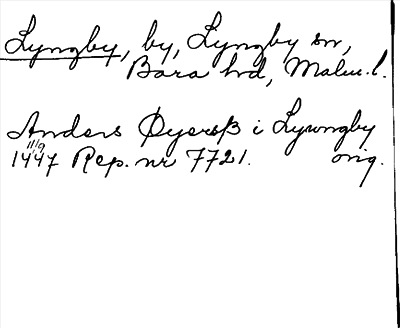 Lyngby, by, Lyngby sn,
Bara hd, Malm. l.
Anders Øyersß i Lywngby
1447 11/9 Rep. nr 7721. orig.